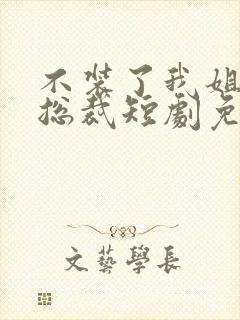 不装了我姐
总裁短劇免
文藝學長